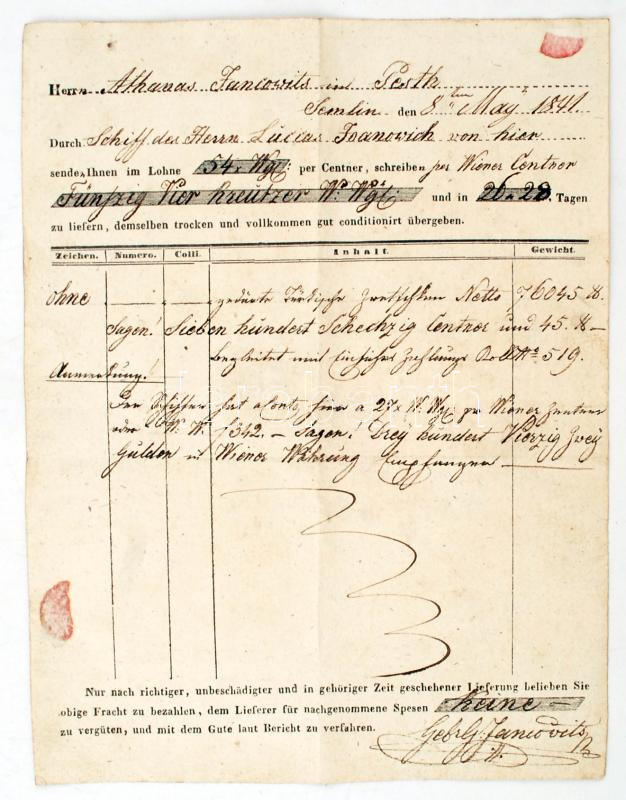 Herrn Athanas Jancovits in Pesth
Semlin den 8ten May 1841.
Durch Schiff des Herrn Luccas Ioanovich von hier
senden Ihnen im Lohne 54x Wg: per Centner, schreiben per Wiener Centner
Fünfzig Vier Kreutzer W. Wg: und in 26 a 28. Tagen
zu liefern, demselben trocken und vollkommen gut conditionirt übergeben.
Zeichen. Numero. Colli. Anhalt. Gewicht.
ohne — — gedörrte Türkische Zwetschken Netto 76045 ℔.
Sagen! Sieben hundert Sechzig Centner und 45. ℔ —
begleitet mit Einfuhrs Zahlungs No 519.
Anmerkung!
Der Schiffer hat a Conto hier a 27x W. Wg per Wiener Zentner
W. W. f 342. — Sagen! Drey hundert Vierzig Zwey
Gulden in Wiener Währung Empfangen
Nur nach richtiger, unbeschädigter und in gehöriger Zeit geschehener Lieferung belieben Sie
obige Fracht zu bezahlen, dem Lieferer für nachgenommene Spesen Keine —
zu vergüten, und mit dem Gute laut Bericht zu verfahren.
Gebrg: Jancovits